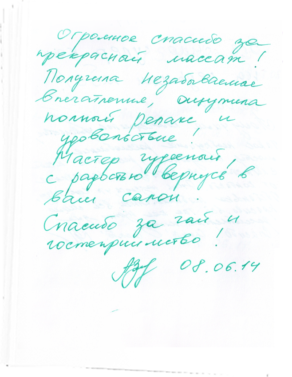 Огромное спасибо за
прекрасный массаж!
Получила незабываемое
впечатление, ощутила
полный релакс и
удовольствие!
Мастер чудесный,
с радостью вернусь в
ваш салон.
Спасибо за чай и
гостеприимство!
08.06.14